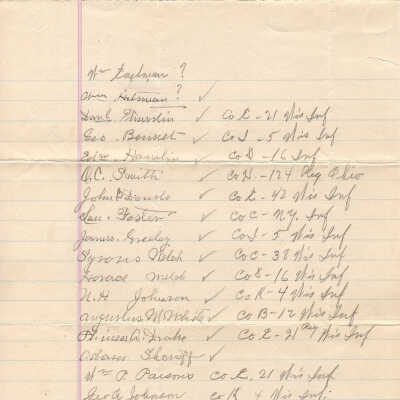 Wm Eastman ?
Hitman ? ✓
Danl ✓ Co E - 21 Wis Inf
Geo Bennet ✓ Co I - 5 Wis Inf
Edw Hamlin ✓ Co D - 16 Inf
O.C. Smith ✓ Co H. - 124 Reg Ohio
John ✓ Co E - 42 Wis Inf
Foster ✓ Co C - N.Y. Inf
James Greeley ✓ Co I - 5 Wis Inf
Welch ✓ Co C - 38 Wis Inf
Horace Welch ✓ Co E - 16 Wis Inf
N.H Johnson ✓ Co K - 4 Wis Inf
Augustus M White ✓ Co B - 12 Wis Inf
Phineas A. Drake ✓ Co E - 21 Reg Wis Inf
Sheriff ✓
Wm P. Parsons Co E. 21 Wis Inf
Geo A Johnson Co K 4 Wis Inf;